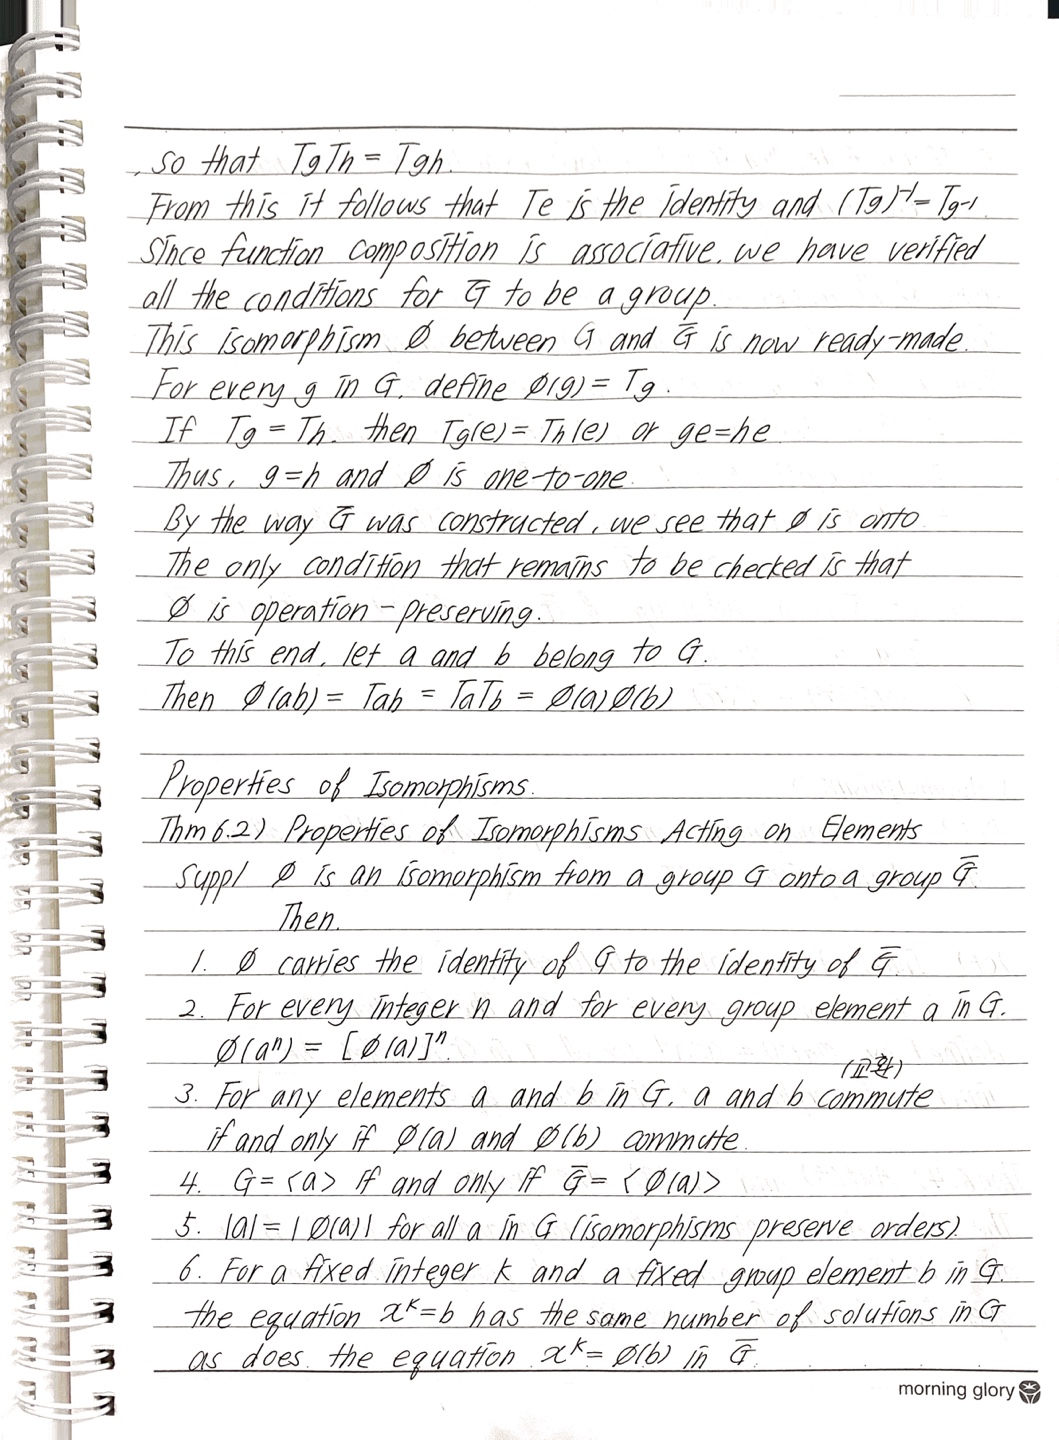 , so that TgTh = Tgh.
From this it follows that Te is the identity and (Tg)⁻¹ = Tg⁻¹.
Since function composition is associative, we have verified
all the conditions for G̅ to be a group.
This isomorphism Ø between G and G̅ is now ready-made.
For every g in G, define Ø(g) = Tg.
If Tg = Th, then Tg(e) = Th(e) or ge=he
Thus, g=h and Ø is one-to-one.
By the way G̅ was constructed, we see that Ø is onto
The only condition that remains to be checked is that
Ø is operation-preserving.
To this end, let a and b belong to G.
Then Ø(ab) = Tab = TaTb = Ø(a)Ø(b)
Properties of Isomorphisms.
Thm 6.2) Properties of Isomorphisms Acting on Elements
Supp/ Ø is an isomorphism from a group G onto a group G̅.
Then.
1. Ø carries the identity of G to the identity of G̅.
2. For every integer n and for every group element a in G.
Ø(aⁿ) = [Ø(a)]ⁿ.
(교환)
3. For any elements a and b in G, a and b commute
if and only if Ø(a) and Ø(b) commute.
4. G = <a> if and only if G̅ = <Ø(a)>
5. |a| = |Ø(a)| for all a in G (isomorphisms preserve orders).
6. For a fixed integer k and a fixed group element b in G.
the equation xᵏ=b has the same number of solutions in G
as does the equation xᵏ = Ø(b) in G̅.
morning glory